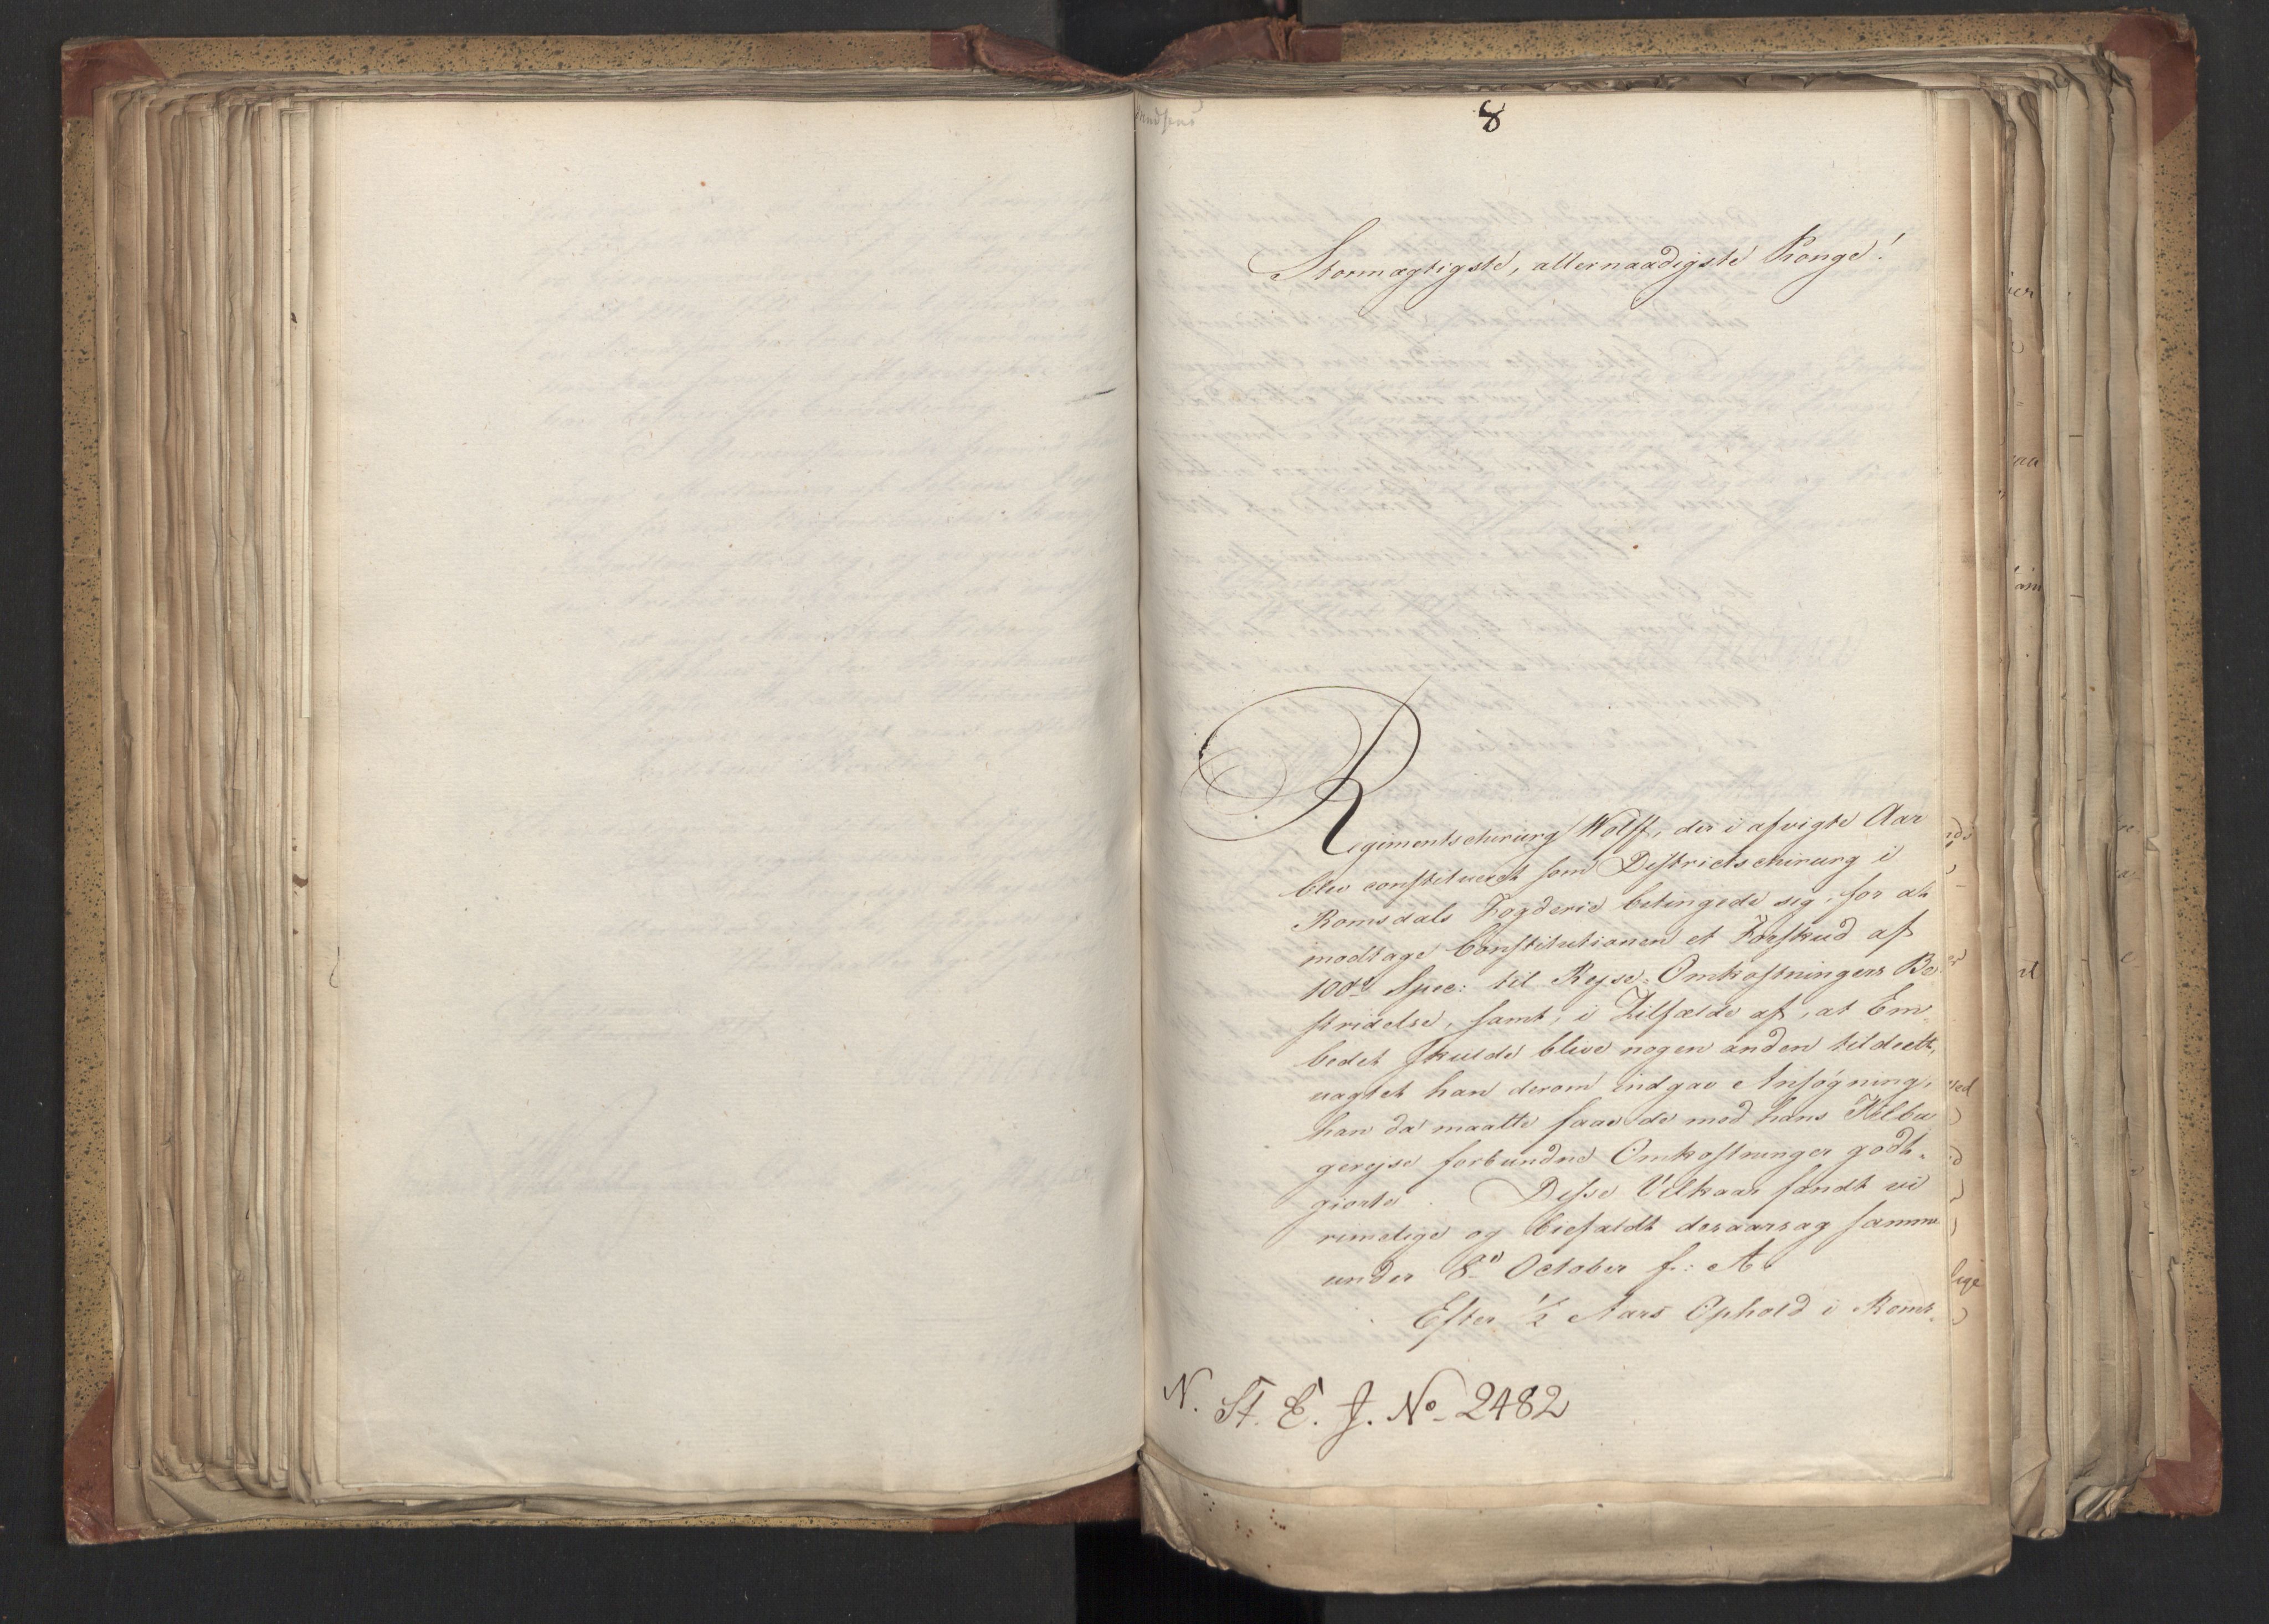 8
Stormægtigste, allernaadigste Konge!
Regimentschirurg Wolff, der i afvigte Aar
blev constitueret som Districtschirurg i
Romsdals Fogderie betingede sig, for at
modtage Constitutionen et Forskud af
100d Spec: til Rejse-Omkostningers Be-
stridelse, samt, i Tilfælde af, at Em-
bedet skulde blive nogen anden tildeelt,
uagtet han derom indgav Ansøgning,
han da maatte faae de med hans Tilba-
gerejse forbundne Omkostninger godt-
giorte. Disse Vilkaar fandt vi
rimelige og biefaldt desaarsag samme
under 8d October f: A.
Efter 1/2 Aars Ophold i Roms-
N. St. E. J. No 2482